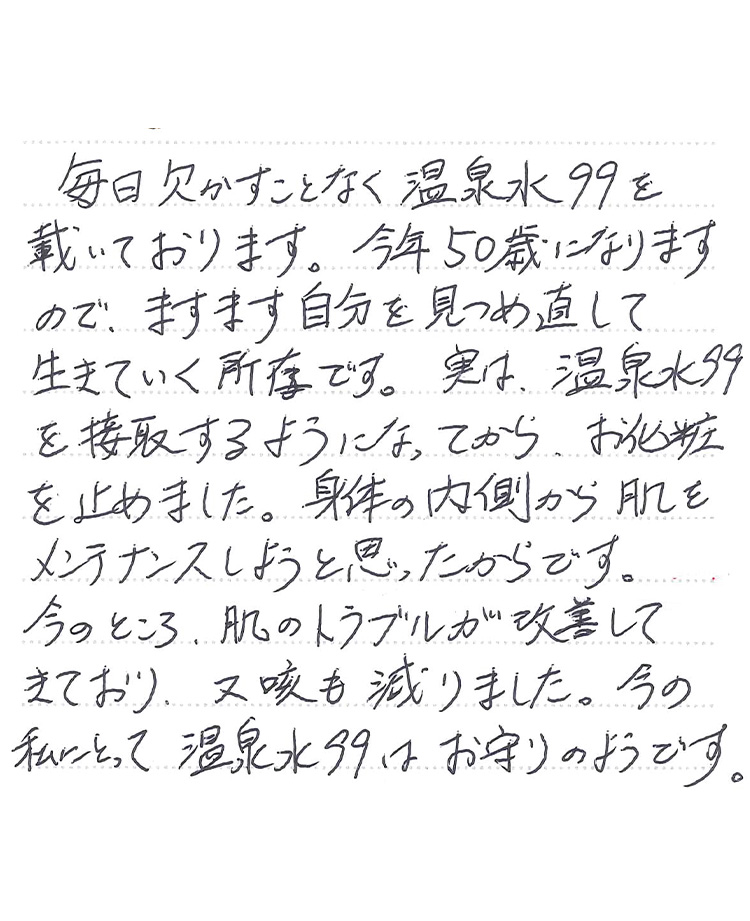 毎日欠かすことなく温泉水99を
載いております。今年50歳になります
ので、ますます自分を見つめ直して
生きていく所存です。実は、温泉水99
を接取するようになってから、お化粧
を止めました。身体の内側から肌を
メンテナンスしようと思ったからです。
今のところ、肌のトラブルが改善して
きており、又咳も減りました。今の
私にとって温泉水99はお守りのようです。